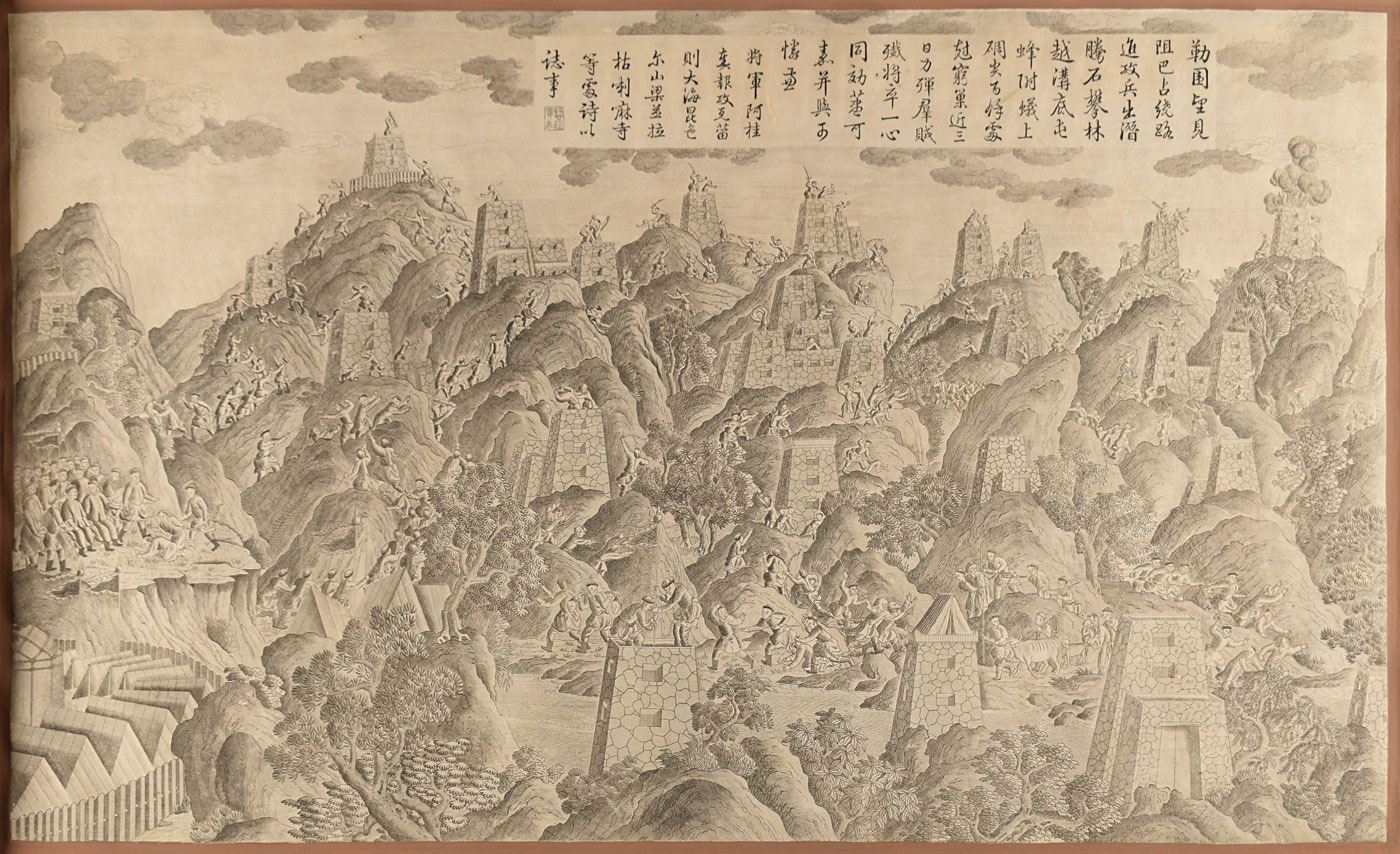 勒圍望見
阻巴占繞路
進攻兵出潛
騰石攀林
越溝底屯
蜂附蟻上
碉尖百餘處
尅窮巢近三
日力殫羣賊
殲將卒一心
同効藎可
嘉并與可
憐兼
將軍阿桂
奏報攻克菑
則大海昆色
尔山梁並拉
枯喇嘛寺
等處詩以
誌事